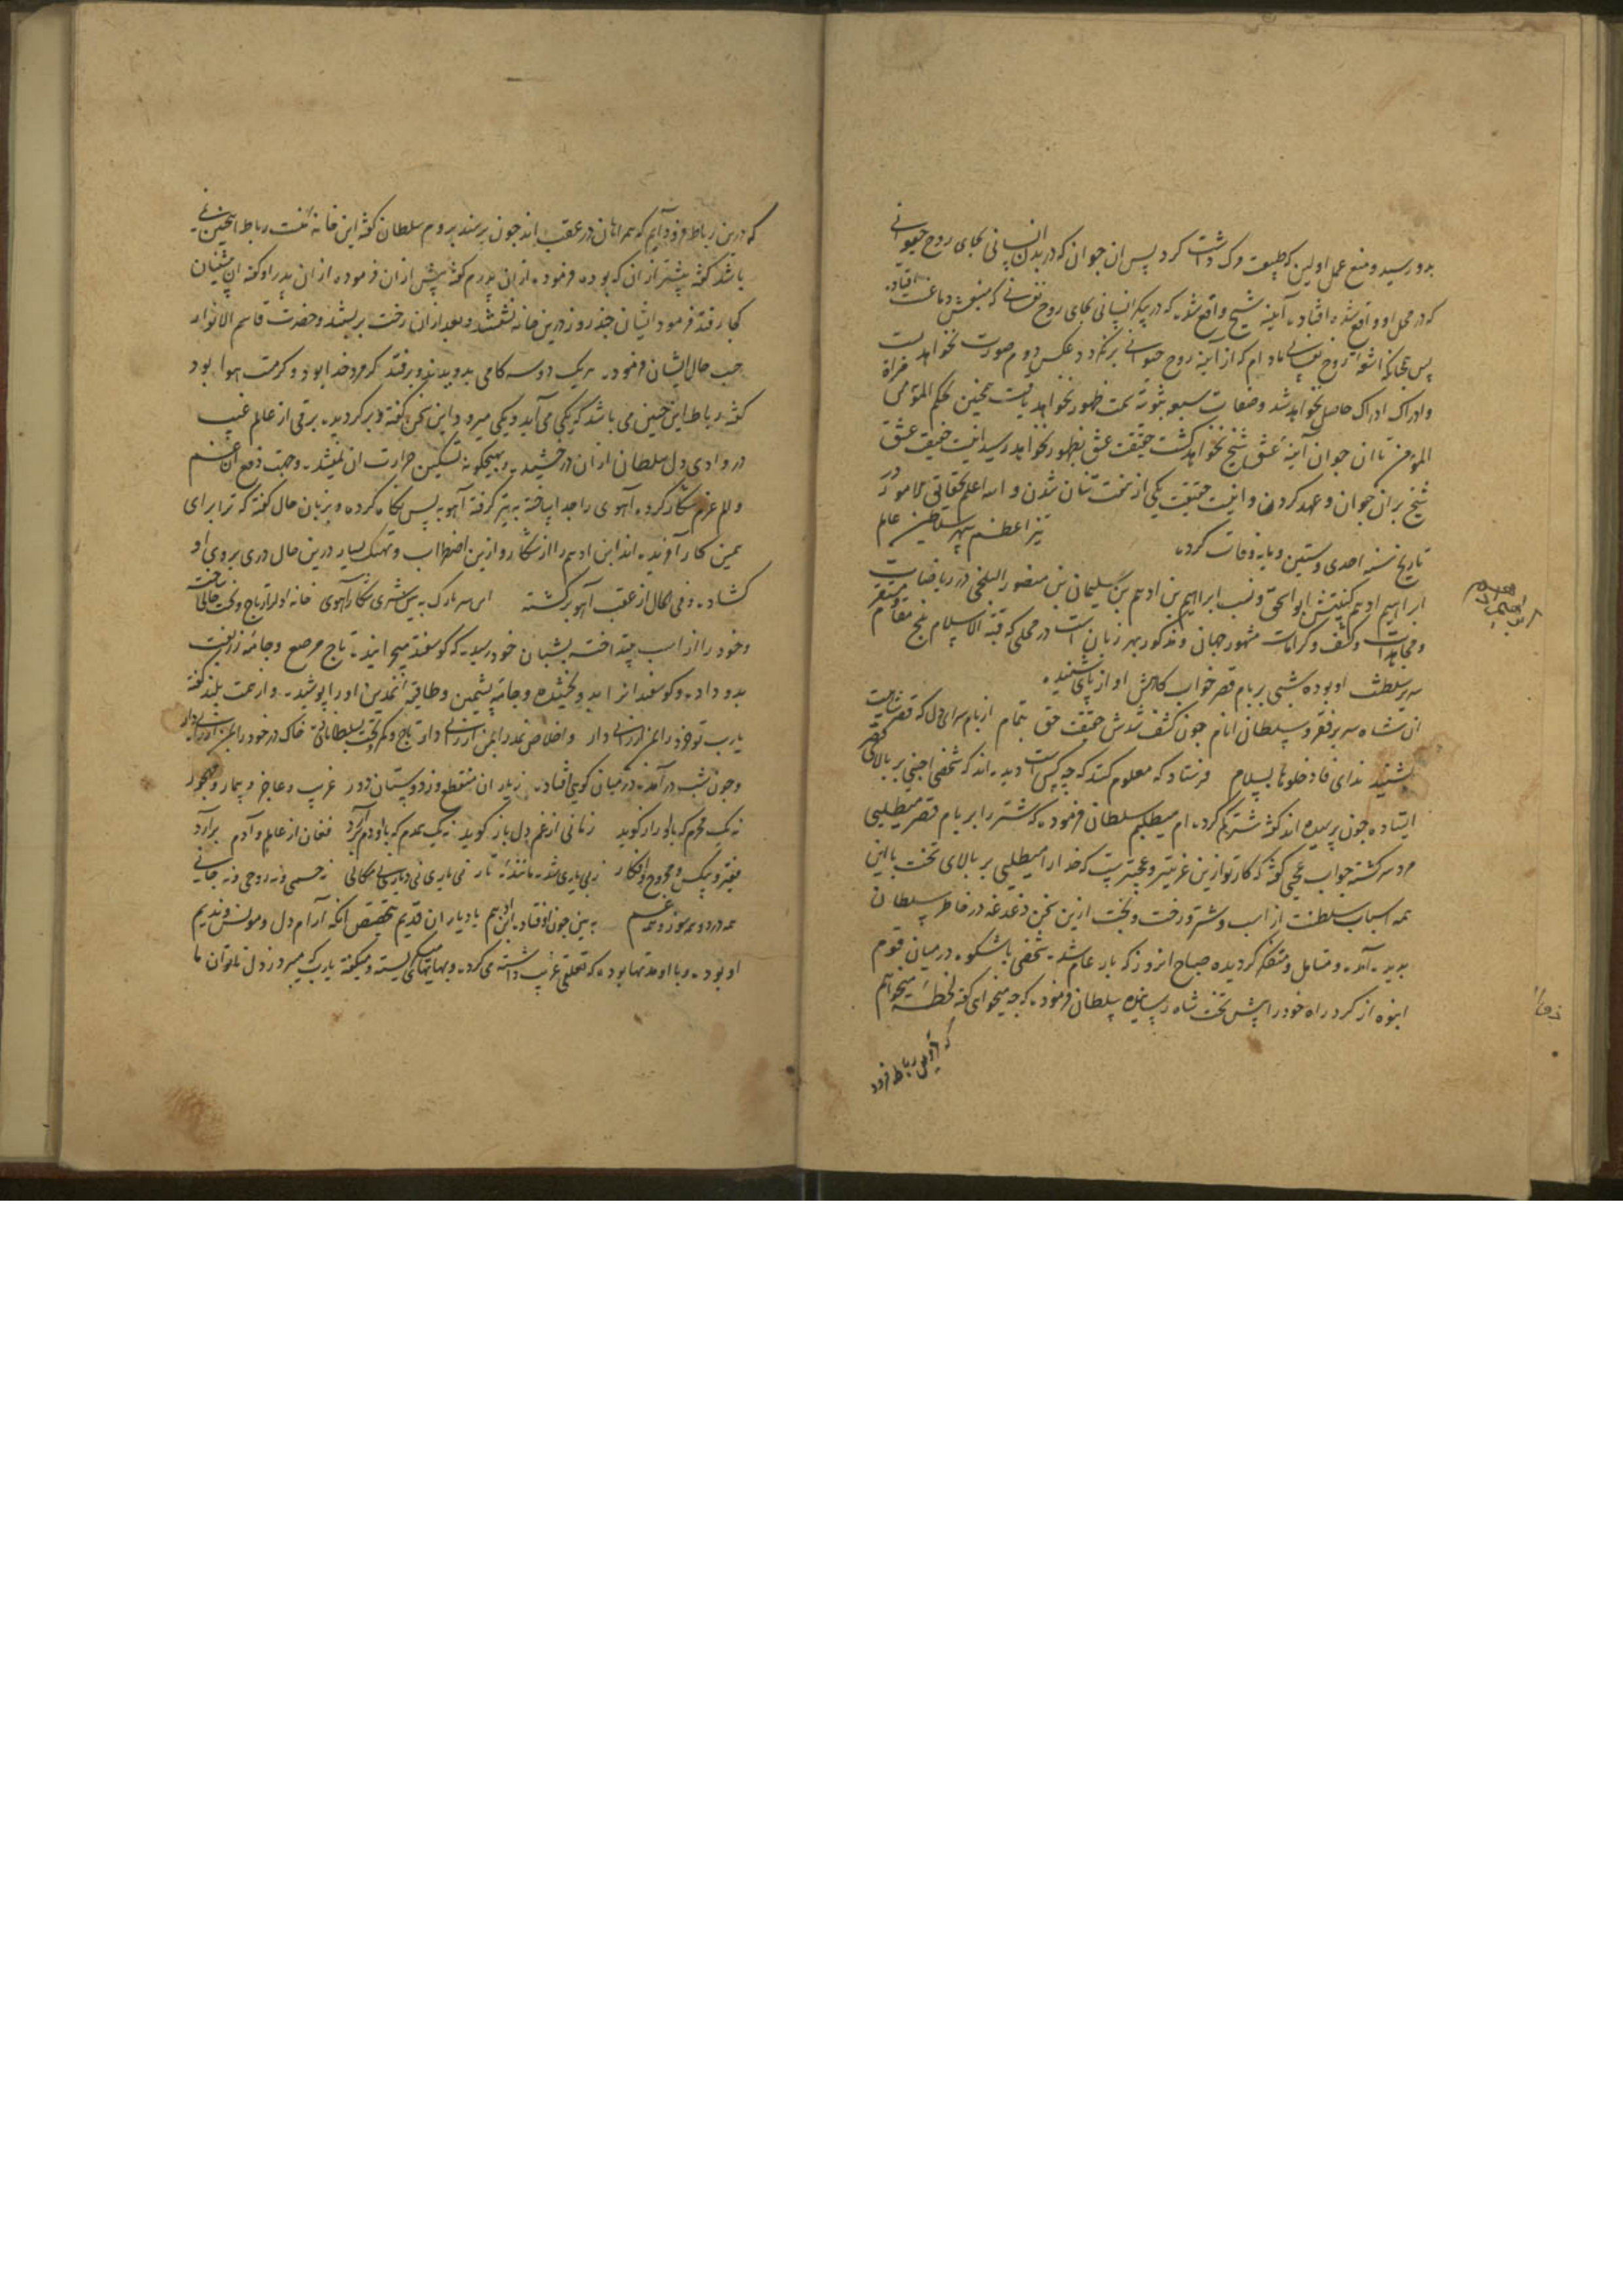 بدو رسید و منع عمل اولین که طبیعت درک داشت کرد پس ان جوان که در بدن انسانی بجای روح حیوانی
که در محل او واقع شده افتاد آینه شیخ واقع شد که در پیکر انسانی بجای روح نفسانی که منبعش دماغست افتاده
پس بجا که اشو روح نفسانی مادام که از اینه روح حیوانی برنکردد عکس دوم صورت نخواهد بست
و ادراک ادراک حاصل نخواهد شد و صفات سبعه ثبوتیه تحت ظهور نخواهد یافت همچنین بحکم المؤمن مراة
المؤمن تا ان جوان آینه عشق شیخ نخواهد کشت حقیقت عشق بظهور نخواهد رسید اینست حقیقت عشق
شیخ بران جوان و عهد کردن و اینست حقیقت یکی از تخت نشان شدن و الله اعلم بحقایق الامور در
تاریخ سنه احدی و ستین و مایه وفات کرده نیر اعظم سپهر سلاطین عالم
ابراهیم ادهم کنیتش ابو اسحق و نسب ابراهیم بن ادهم بن سلیمان بن منصور البلخی در ریاضات
و مجاهدات و کشف و کرامات مشهور جهان و مذکور بهر زبان است در محلی که قبة الاسلام بلخ مقام و مستقر
سریر سلطنت او بوده شبی بر بام قصر خواب کاهش آواز پای شنیده
ان شاه سریر فقر و سلطان انام چون کشف شدش حقیقت حق بتمام از بام سرای دل که قصر شاهیست
بشنید ندای فادخلوها بسلام فرستاد که معلوم کنند که چه کس است دیده اند که شخصی اجنبی بر بالای قصر
ایستاده چون پرسیده اند کفته شتر کم کرده ام میطلبم سلطان فرموده که شتر را بر بام قصر میطلبی
مرد سرکشته جواب عجبی کفته که کار تو ازین غریبتر و عجبتر نیست که خدا را میطلبی بر بالای تخت با این
همه اسباب سلطنت از اسب و شتر و رخت و بخت ازین سخن دغدغه در خاطر سلطان
پدید آمده و متامل و متفکر کردیده صباح انروز که بار عام شد شخصی باشکوه در میان قوم
انبوه از کرد راه خود را پیش تخت شاه رسانیده سلطان فرموده که چه میخواهی کفته لحظه میخواهم
که درین رباط فرود
ابراهیم ادهم
که درین رباط فرود آیم که همراهان در عقب اند چون برسند بروم سلطان کفته این خانه منست رباط اینچنین نمی
باشد کفته پیشتر از ان که بوده فرموده از ان پدرم کفته پیش از ان فرموده از ان پدر او کفته ان پیشینیان
کجا رفتند فرمود ایشان چند روز درین خانه نشستند و بعد از ان رخت بربستند و حضرت قاسم الانوار
حسب حال ایشان فرموده هر یک دو سه کامی بدویدند و برفتند کر مرد خدا بود و کر مست هوا بود
کفته رباط این چنین می باشد که یکی می آید و یکی میرود و این سخن کفته و برکردیده برقی از عالم غیب
در وادی دل سلطان از ان درخشیده و بهیچکونه تسکین حرارت ان نمیشد و جهت دفع ان غم
و الم عزم شکار کرده آهوی را جدا ساخته به تیر کرفته آهو به پس نکاه کرده و بزبان حال کفته که ترا برای
همین کار آفریده اند ابن ادهم را از شکار و ازین اضطراب و تهتک بسیار درین حال دری بروی او
کشاده و فی الحال از عقب آهو برکشته این سر تارک به پیش شیری شکار آهوی خانه او را ز تاج و تخت خالی ساخت
و خود را از اسب چند اخته بشبان خود رسیده که کوسفند میچرانیده تاج مرصع و جامه زربفت
بدو داده و کوسفند انرا بدو بخشیده و جامه پشمین و طاقیه نمدین او را پوشیده و از همت بلند کفته
یارب تو فقر را بمن ارزانی دار و اخلاص نمد را بمن ارزانی دار تاج و کمر و تخت بسلطانان ده خاک در خود را بمن ارزانی دار
و چون شب در آمد در میان کوهی افتاده ز یاران منقطع وز دوستان دور غریب و عاجز و بیمار و مهجور
نه یک محرم که با او راز کوید زمانی از غم دل باز کوید نه یک همدم که با او دم برآرد فغان از عالم و آدم برآرد
فقیر و بیکس و مجروح و افکار ز بی یاری شده مانند تار نی یاری نی دیاری نی مکانی نه جسمی و نه روحی و نه جانی
همه درد و همه سوز و همه غم به بین چون اوفتاده ابن ادهم با دیاران قدیم بتخصیص انکه آرام دل و مونس و ندیم
او بود و با او مدتها بوده که تعلقی غریب داشته می کرده و بهایهای میکریسته و میکفته یارب که میبرد ز دل ناتوان ما